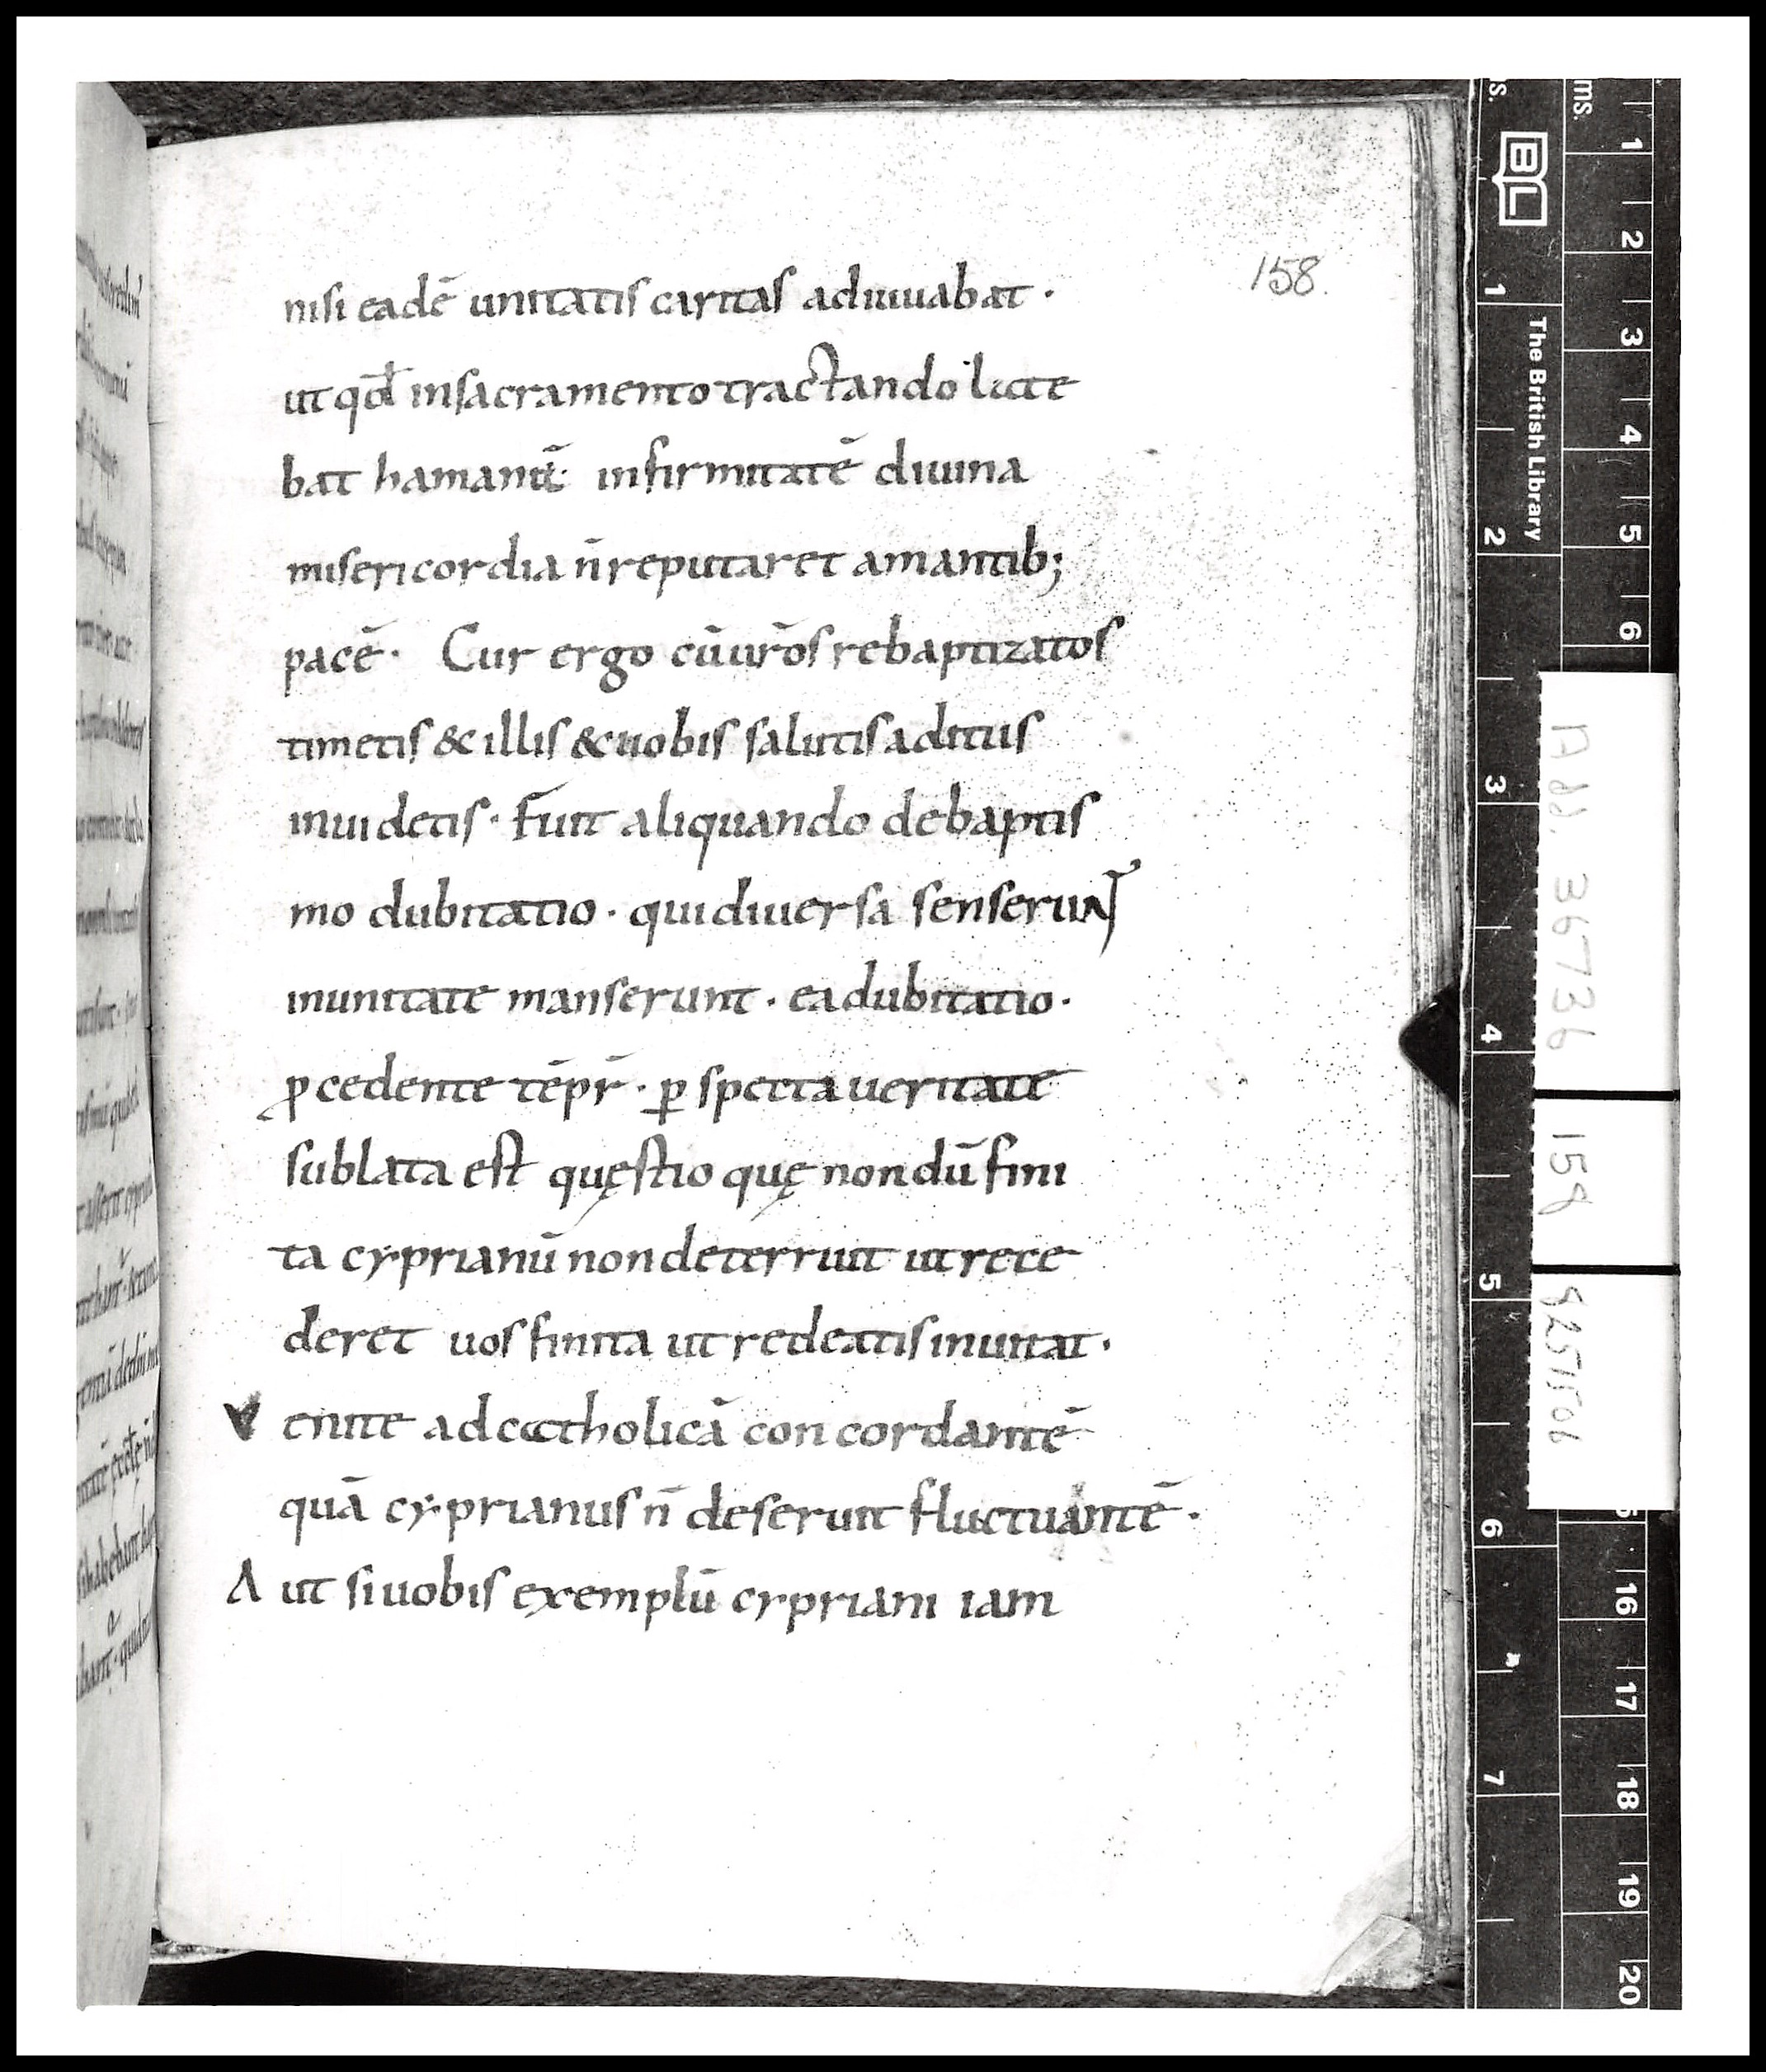 158.
nisi eadē unitatis caritas adiuuabat ·
ut qđ insacramento tractando late
bat hamanē infirmitatē diuina
misericordia n̄ reputaret amantib;
pacē · Cur ergo cū ur̄os rebaptizatos
timetis & illis & uobis salutis aditus
inuidetis · Fuit aliquando debaptis
mo dubitatio · qui diuersa senserunt
inunitate manserunt · ea dubitatio ·
ꝓcedente tēpr̄ · ꝑspecta ueritate
sublata est quęstio quę nondū fini
ta cyprianū non deterruit ut rece
deret uos finita ut redeatis inunitat ·
Venite ad catholicā concordantē
quā cyprianus n̄ deseruit fluctuantē ·
Aut si uobis exemplū cypriani iam
The British Library
BL
ms.
s.
1
2
3
4
5
6
16
17
18
19
20
1
2
3
4
5
6
7
Add. 36736
158